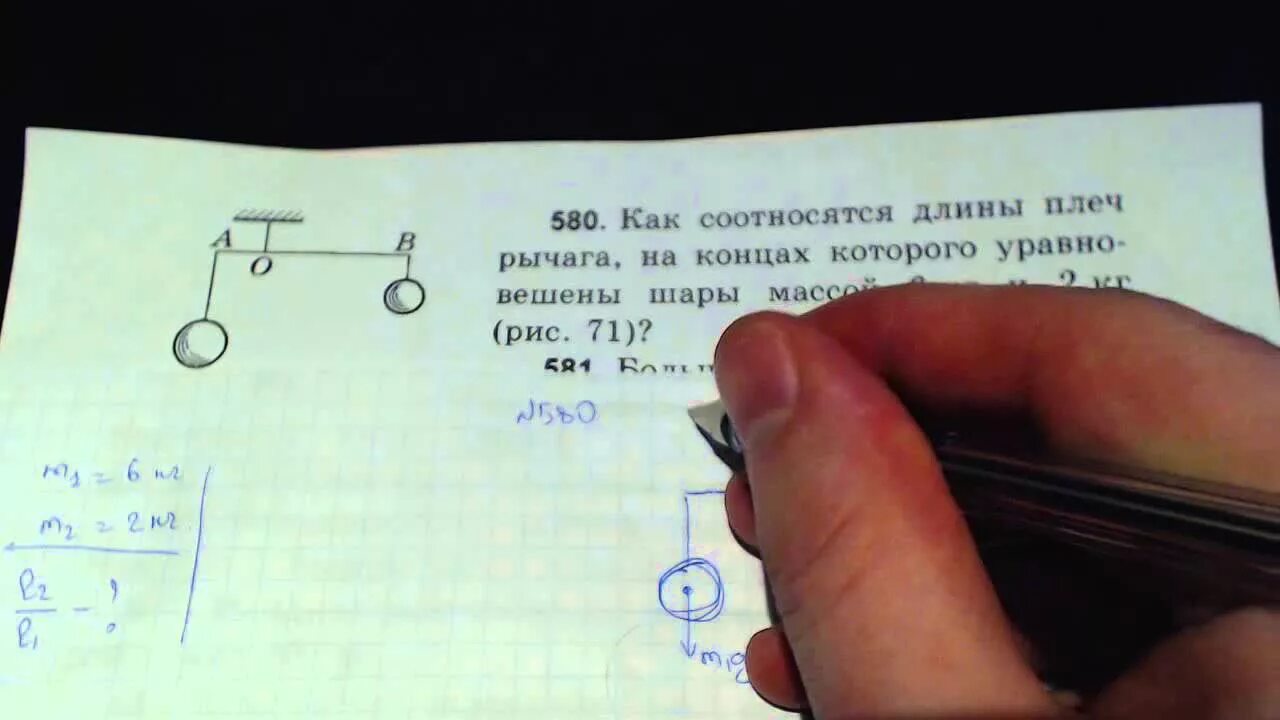 A
B
O
580. Как соотносятся длины плеч
рычага, на концах которого уравно-
вешены шары массой и 2 кг
(рис. 71)?
581
№580
m₁ = 6 кг
m₂ = 2 кг
l₂
l₁ - ?
m₁g